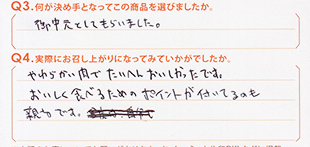 Q3.何が決め手となってこの商品を選びましたか。
御中元としてもらいました。
Q4.実際にお召し上がりになってみていかがでしたか。
やわらかい肉でたいへんおいしかったです。
おいしく食べるためのポイントが付いてるのも
親切です。